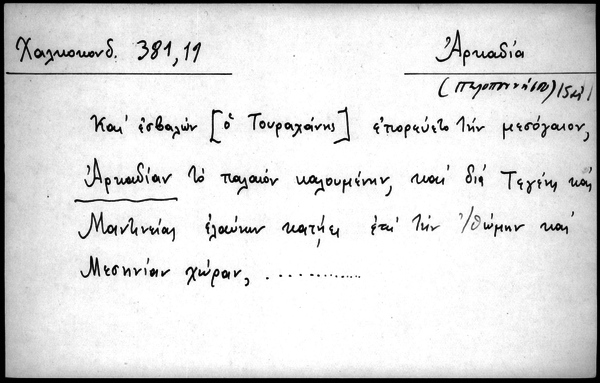 Χαλκοκονδ. 381,11
Ἀρκαδία
(Πελοποννήσου)
Καὶ ἐσβαλὼν [ὁ Τουραχάνης] ἐπορεύετο τὴν μεσόγαιον,
Ἀρκαδίαν τὸ παλαιὸν καλουμένην, καὶ διὰ Τεγέης καὶ
Μαντινείας ἐλαύνων κατῄει ἐπὶ τὴν Ἰθώμην καὶ
Μεσηνίαν χώραν, .............